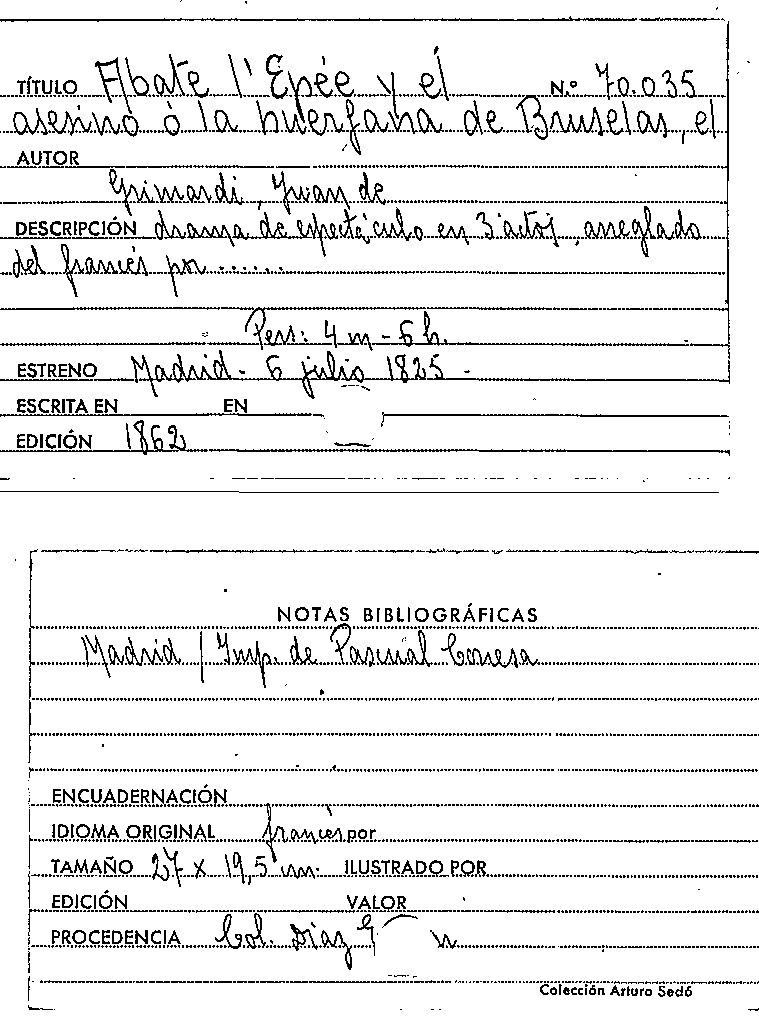 TÍTULO Abate l'Epée y el N.º 70.035
asesino ó la huerfana de Bruselas, el
AUTOR
Grimardi, Juan de
DESCRIPCIÓN drama de espectáculo en 3 actos, arreglado
del francés por ......
Pers: 4 m - 6 h.
ESTRENO Madrid - 6 julio 1825 -
ESCRITA EN EN
EDICIÓN 1862
NOTAS BIBLIOGRÁFICAS
Madrid / Imp. de Pascual Conesa
ENCUADERNACIÓN
IDIOMA ORIGINAL francés por
TAMAÑO 27 x 19,5 cm. ILUSTRADO POR
EDICIÓN VALOR
PROCEDENCIA Col. Díaz
Colección Arturo Sedó